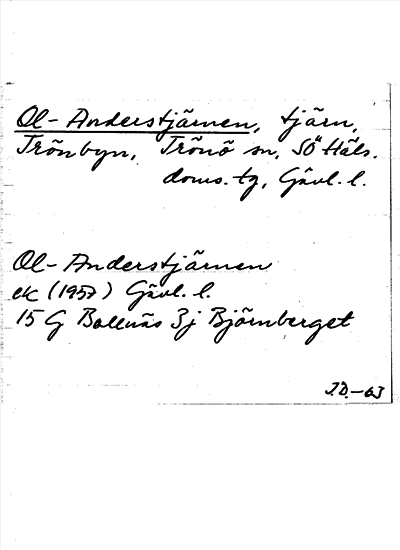 Ol-Anderstjärnen, tjärn,
Trönbyn, Trönö sn, Sö Häls.
doms. tg, Gävl. l.
Ol-Anderstjärnen
ek (1957) Gävl. l.
15 G Bollnäs 3j Björnberget
J.D.-63